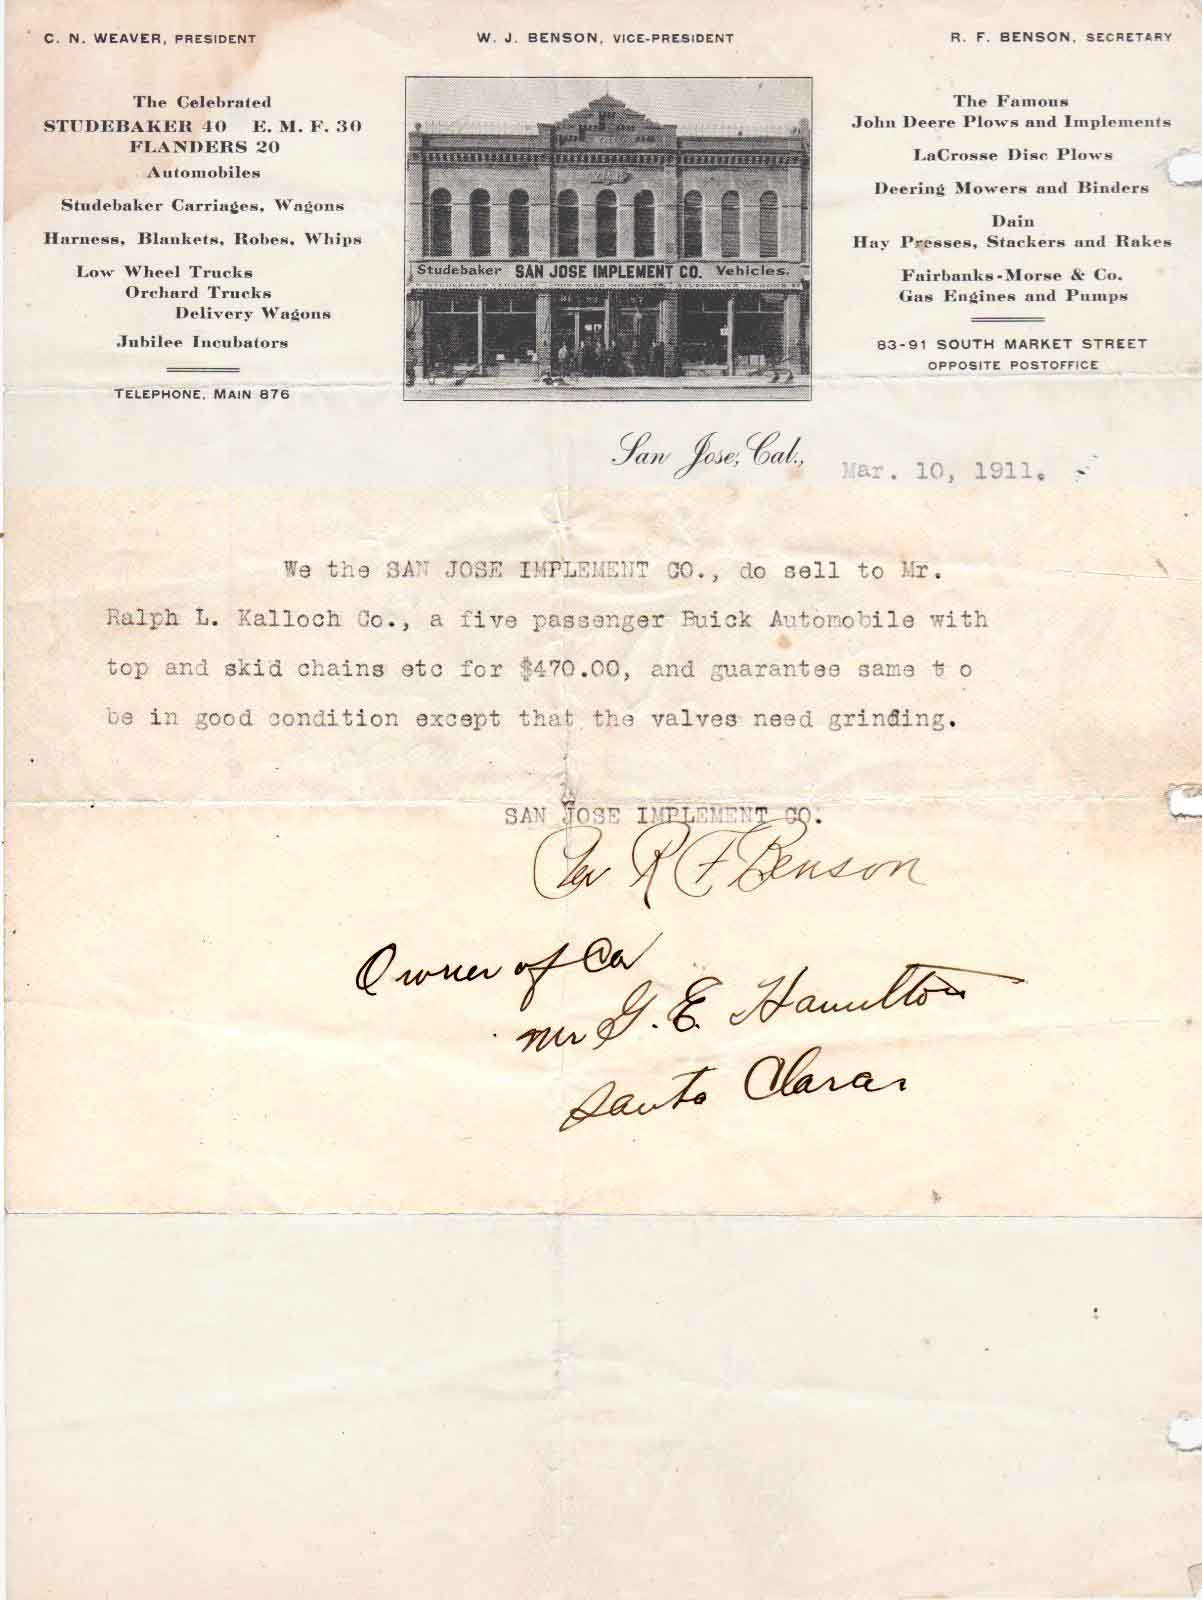 C. N. WEAVER, PRESIDENT
W. J. BENSON, VICE-PRESIDENT
R. F. BENSON, SECRETARY
The Celebrated
STUDEBAKER 40 E. M. F. 30
FLANDERS 20
Automobiles
Studebaker Carriages, Wagons
Harness, Blankets, Robes, Whips
Low Wheel Trucks
Orchard Trucks
Delivery Wagons
Jubilee Incubators
TELEPHONE, MAIN 876
Studebaker SAN JOSE IMPLEMENT CO. Vehicles.
The Famous
John Deere Plows and Implements
LaCrosse Disc Plows
Deering Mowers and Binders
Dain
Hay Presses, Stackers and Rakes
Fairbanks-Morse & Co.
Gas Engines and Pumps
83-91 SOUTH MARKET STREET
OPPOSITE POSTOFFICE
San Jose, Cal., Mar. 10, 1911.
We the SAN JOSE IMPLEMENT CO., do sell to Mr.
Ralph L. Kalloch Co., a five passenger Buick Automobile with
top and skid chains etc for $470.00, and guarantee same t o
be in good condition except that the valves need grinding.
SAN JOSE IMPLEMENT CO.
Per R F Benson
Owner of Car
Mr G. E. Hamilton
Santa Clara